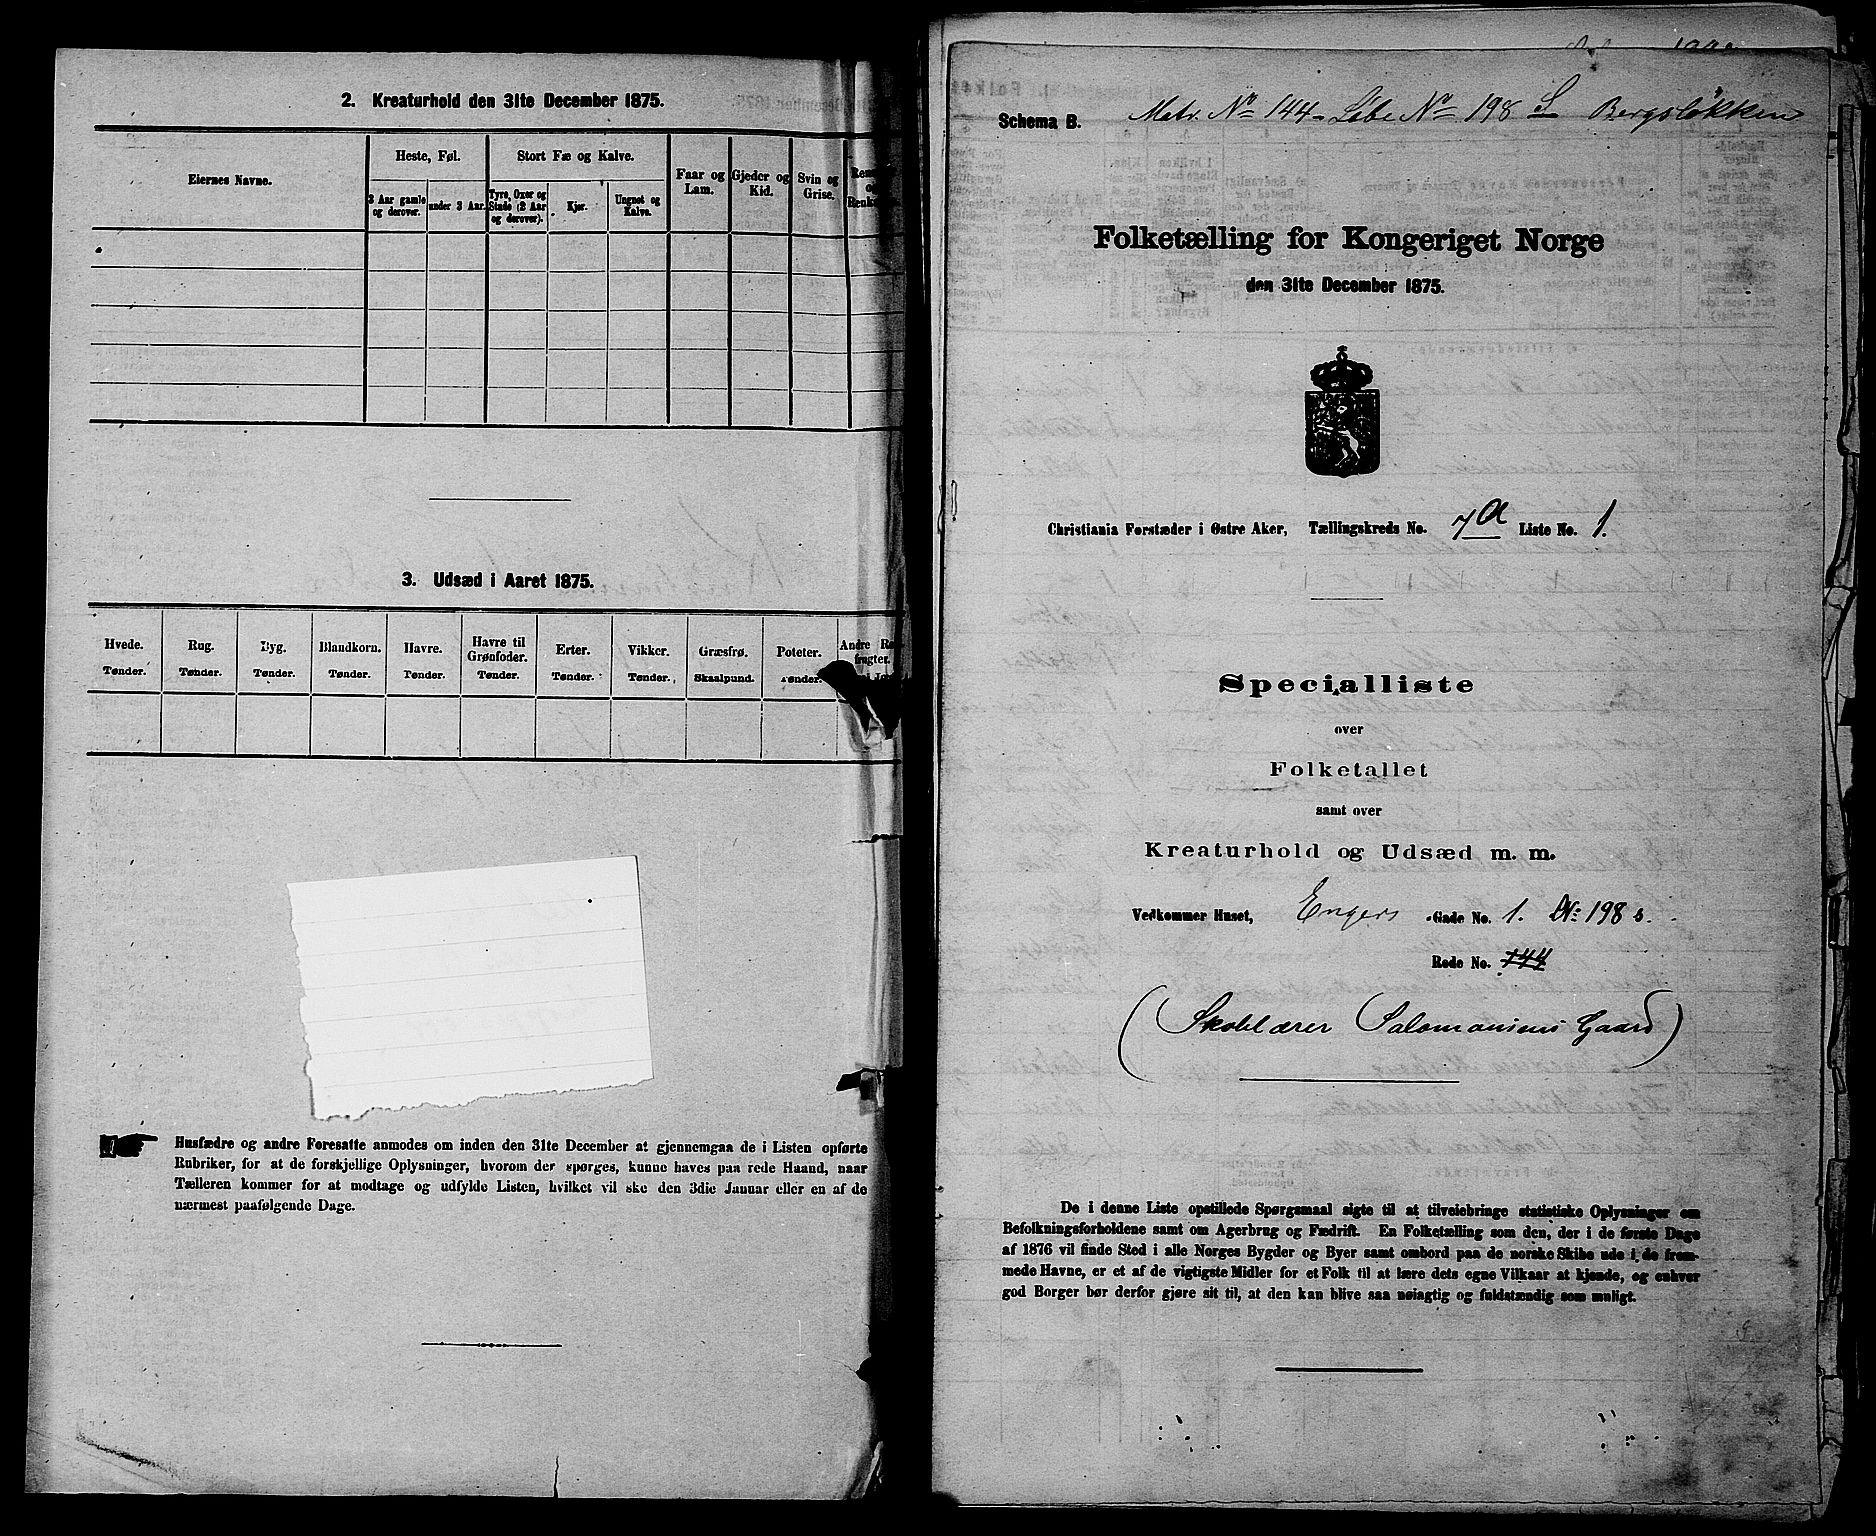 2. Kreaturhold den 31te December 1875.
Eiernes Navne.
Heste, Føl.
Stort Fæ og Kalve.
Faar og
Lam.
Gjeder og
Kid.
Svin og
Grise.
3 Aar gamle
og derover.
under 3 Aar.
Tyre, Oxer og
Stude (2 Aar
og derover).
Kjør.
Ungnet og
Kalve.
3. Udsæd i Aaret 1875.
Hvede.
Tønder.
Rug.
Tønder.
Byg.
Tønder.
Blandkorn.
Tønder.
Havre.
Tønder.
Havre til
Grønfoder.
Tønder.
Erter.
Tønder.
Vikker.
Tønder.
Græsfrø.
Skaalpund.
Poteter.
Tønder.
Andre
Husfædre og andre Foresatte anmodes om inden den 31te December at gjennemgaa de i Listen opførte
Rubriker, for at de forskjellige Oplysninger, hvorom der spørges, kunne haves paa rede Haand, naar
Tælleren kommer for at modtage og udfylde Listen, hvilket vil ske den 3die Januar eller en af de
nærmest paafølgende Dage.
Schema B.
Matr. No 144 - Løbe No 198 S Bergsløkken
Folketælling for Kongeriget Norge
den 31te December 1875.
Christiania Forstæder i Østre Aker, Tællingskreds No. 7a Liste No. 1.
Specialliste
over
Folketallet
samt over
Kreaturhold og Udsæd m. m.
Vedkommer Huset, Engers Gade No. 1. No 198 s.
Rode No. 144
(Skolelærer Salomansens Gaard)
De i denne Liste opstillede Spørgsmaal sigte til at tilveiebringe statistiske Oplysninger om
Befolkningsforholdene samt om Agerbrug og Fædrift. En Folketælling som den, der i de første Dage
af 1876 vil finde Sted i alle Norges Bygder og Byer samt ombord paa de norske Skibe ude i de frem-
mede Havne, er et af de vigtigste Midler for et Folk til at lære dets egne Vilkaar at kjende, og enhver
god Borger bør derfor gjøre sit til, at den kan blive saa nøiagtig og fuldstændig som muligt.